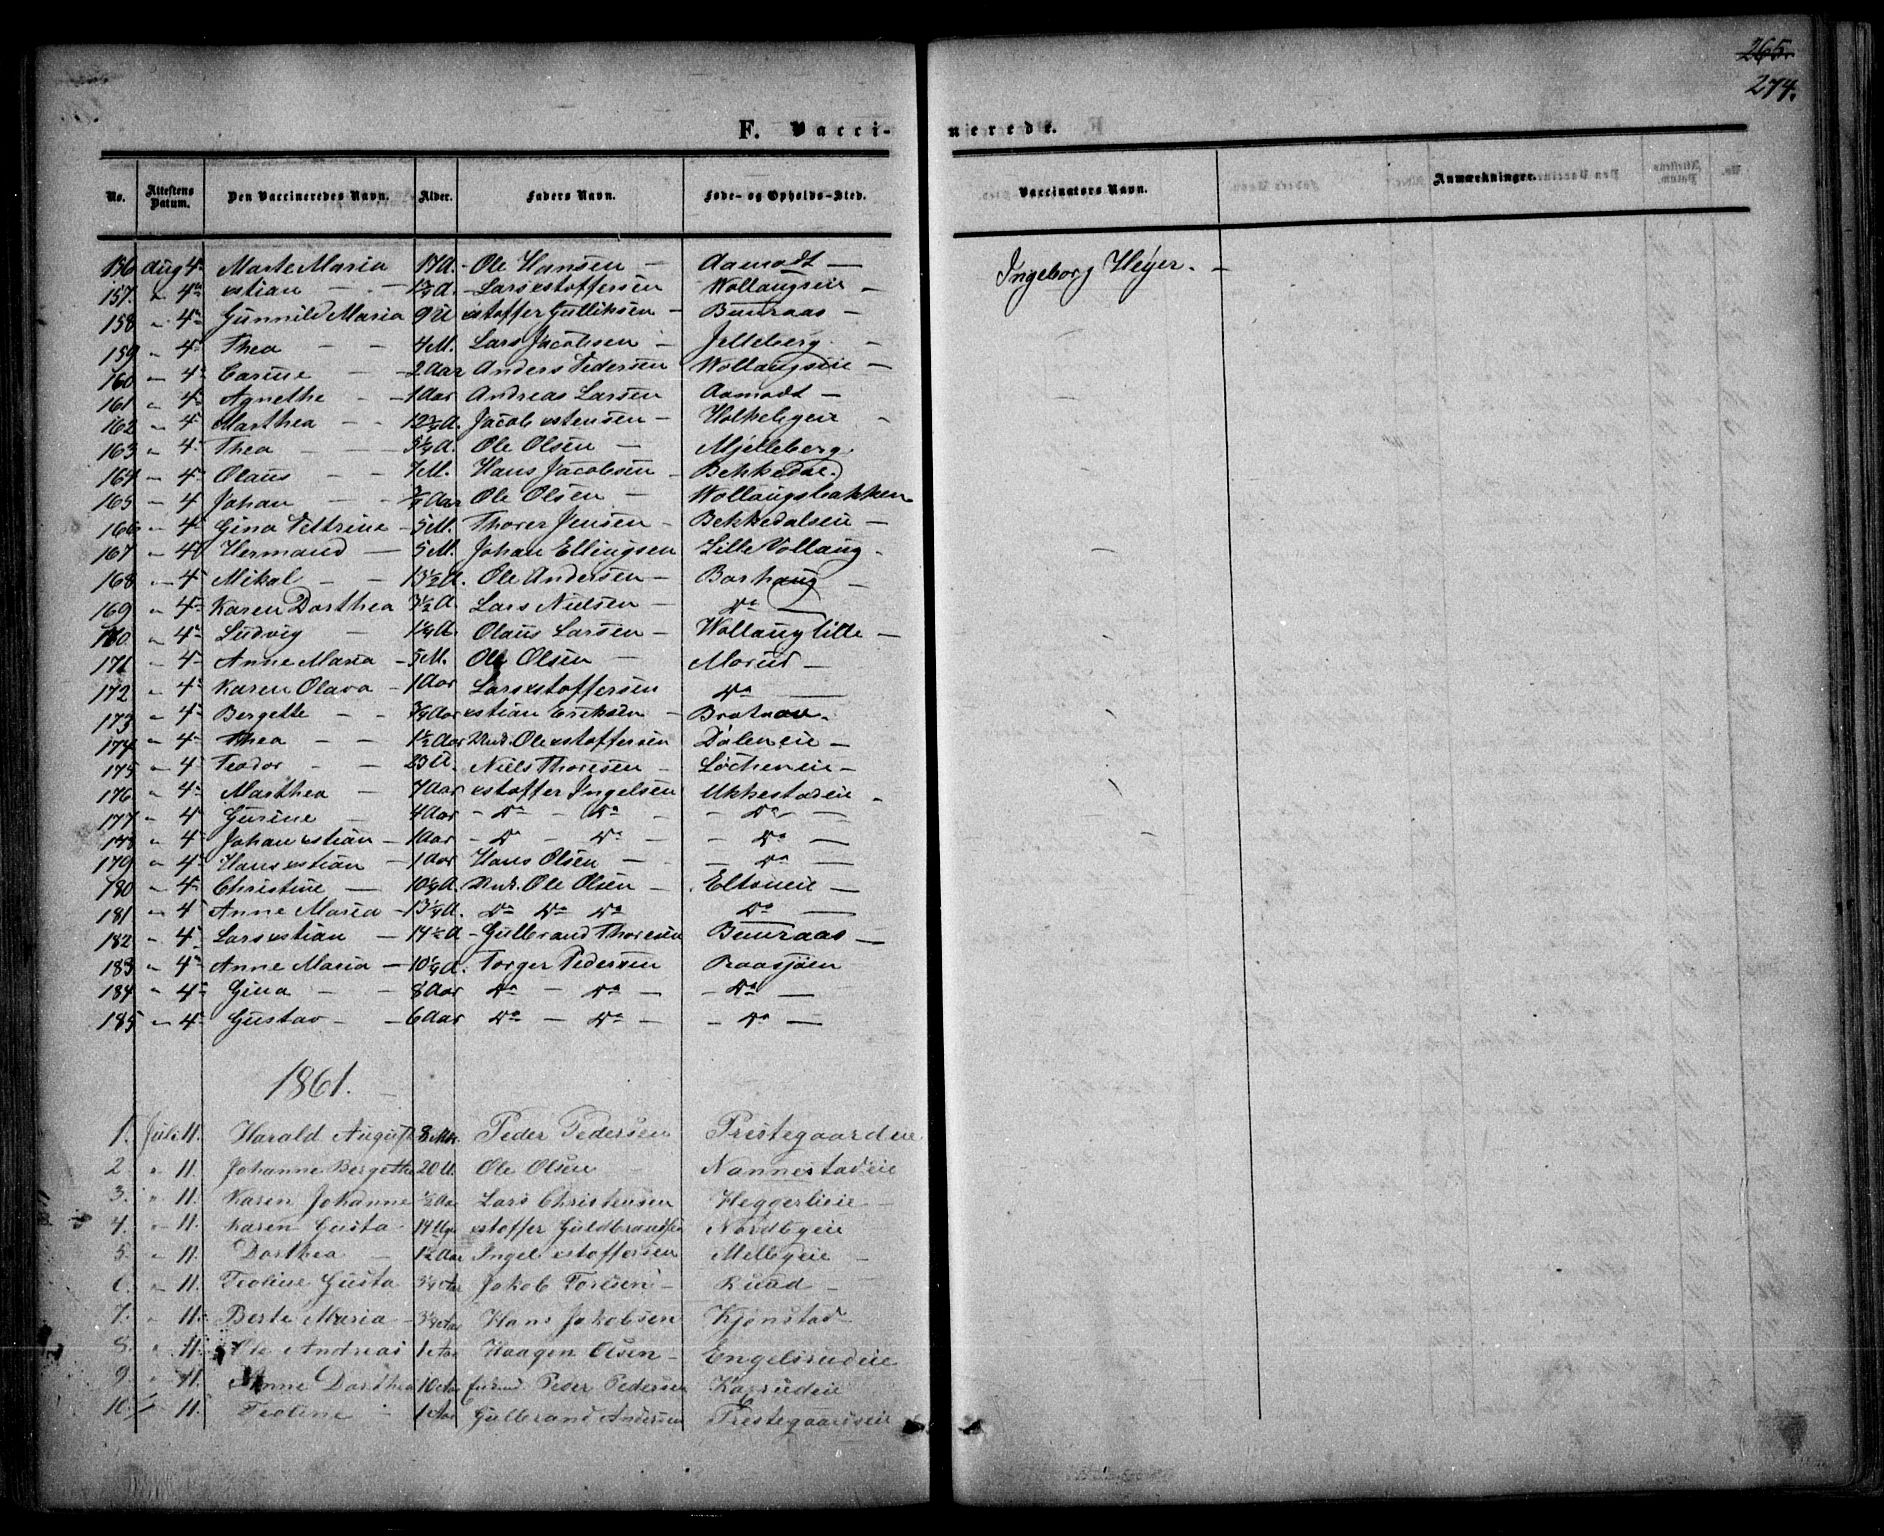 265.
274.
F. Vacci- nerede.
No. Attestens Datum. Den Vaccineredes Navn. Alder. Faders Navn. Føde- og Opholds-Sted. Vaccinators Navn. Anmærkninger.
156 Aug 4 Marte Maria 17 A. Ole Hansen Aamodt Ingeborg Heyer.
157. " 4 xstian Lars xstoffersen Wollaugseie
158 " 4 Gunnild Maria xstoffer Gulliksen Buuraas
159 " 4 Thea 4 M. Lars Jacobsen Jelleberg
160 " 4 Carine 2 Aar Anders Pedersen Wollaugseie
161 " 4 Agnethe 1 Aar Andreas Larsen Aamodt
162 " 4 Marthea Jacob xstensen
163 " 4 Thea 5 1/4 A. Ole Olsen Mjelleberg
164 " 4 Olaus 7 M. Hans Jacobsen Bekkedal.
165 " 4 Johan 3/4 Aar Ole Olsen Wollaugsbakken
166 " 4 Gina Pettrine 5 M. Thorer Jensen Bekkedalseie
167 " 4 Hermand 5 M. Johan Ellingsen Lille Vollaug
168 " 4 Mikal 13 1/2 A. Ole Andersen Barhaug
169 " 4 Karen Dorthea 3 1/2 A Lars Nielsen Do
170 " 4 Ludvig 1 1/4 A. Olaus Larsen Wollaug lille
171 " 4 Anne Maria 5 M. Ole Olsen Morud
172 " 4 Karen Olava 1 Aar Lars xstoffersen Do
173 " 4 Bergette 3/4 Aar xstian Eriksen
174 " 4 Thea 1 1/2 Aar Und. Ole xstoffersen Døleneie
175 " 4 Teodor 23 U. Niels Thoresen Løcheneie
176 " 4 Marthea 7 Aar xstoffer Ingelsen Ukkestadeie
177 " 4 Gurine 4 Aar Do Do Do
178 " 4 Johan xstian 1 Aar Do Do Do
179 " 4 Hans xstian 1 Aar Hans Olsen Do
180 " 4 Christine 10 1/4 A. Und. Ole Olsen Eltoneie
181 " 4 Anne Maria 13 1/4 A. Do Do Do Do
182 " 4 Lars xstian 14 1/2 A Gulbrand Thoresen Buuraas
183 " 4 Anne Maria 10 1/4 A. Torger Pedersen Raasjøen
184 " 4 Gina 8 Aar Do Do Do
185 " 4 Gustav 6 Aar Do Do Do
1861.
1. Juli 11. Harald August 8 Mdr. Peder Pedersen Prestegaardeie
2 " 11. Johanne Bergethe 20 U. Ole Olsen Nannestadeie
3. " 11. Karen Johanne 1/2 Aar Lars Christensen Heggerlieie
4. " 11. Karen Gusta 14 Uger xstoffer Guldbrandsen Nordbyeie
5. " 11. Dorthea 1 1/2 Aar Ingel xstoffersen Mellbyeie
6. " 11. Teoline Gusta 3/4 Aar Jakob Toresen Ruud
7. " 11. Berte Maria 3/4 Aar Hans Jakobsen Kjønstad
8. " 11. Ole Andreas 1 Aar Haagen Olsen Engelsrudeie
9. " 11. Anne Dorthea 10 Aar Peder Pedersen
10. " 11. Teoline 1 Aar Gulbrand Andersen Prestegaardseie